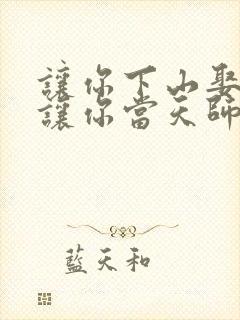 讓你下山娶
讓你當天師
藍天和